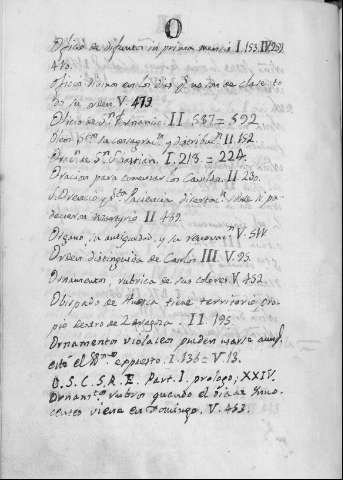 O
Oficio de difuntos su primera mencio I. 153. IV. 252.
410.
Oficio divino en los dias q.e
do su orden V. 479
Oficio de S.n II. 587 = 592
Oleos S.tos la consagrac.n y distribuc.n II. 152.
Orac.n de S.n I. 213. = 224.
Oracion para comenzar los II. 230.
S. Orencio y S.ta Paciencia disertac.n sobre si pa-
decieron martyrio II 469.
Organo, su antiguedad, y su V. 511
Orden distinguida de Carlos III. V. 95.
Ornamentos, rubrica de sus colores V. 452
Obispado de Huesca tiene territorio pro-
pio dentro de Zaragoza. II. 195
Ornamentos violaceos pueden usarse aunq.
este el expuesto. I. 136 = V. 18.
O. S. C. S. R. E. Part. I. prologo, XXIV.
Ornam.tos rubros quando el dia de Inno-
centes viene en Domingo. V. 453.